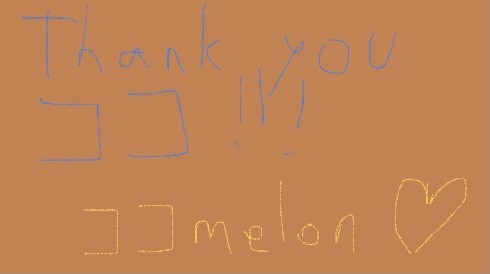 Thank you
ココ!!!
ココmelon♡